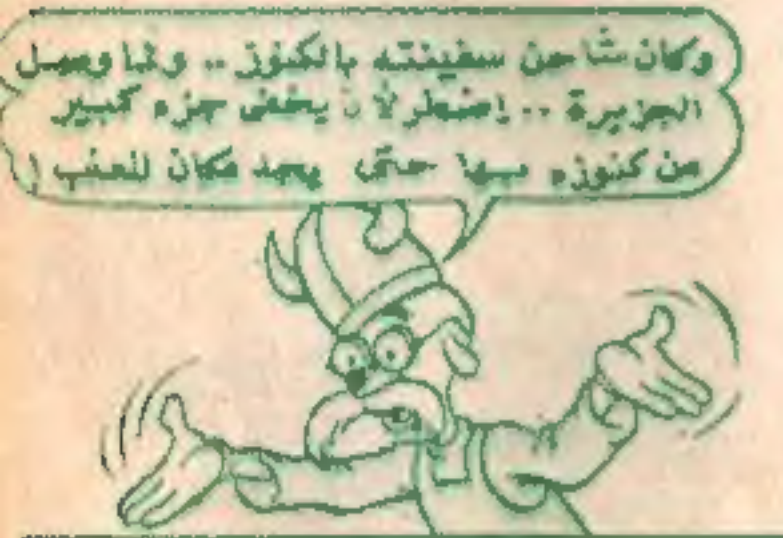 وكان شاحن سفينته بالكنوز .. ولما وصل
الجزيرة .. إضطر لأن يخفى جزء كبير
من كنوزه بها حتى يجد مكان للعنب !